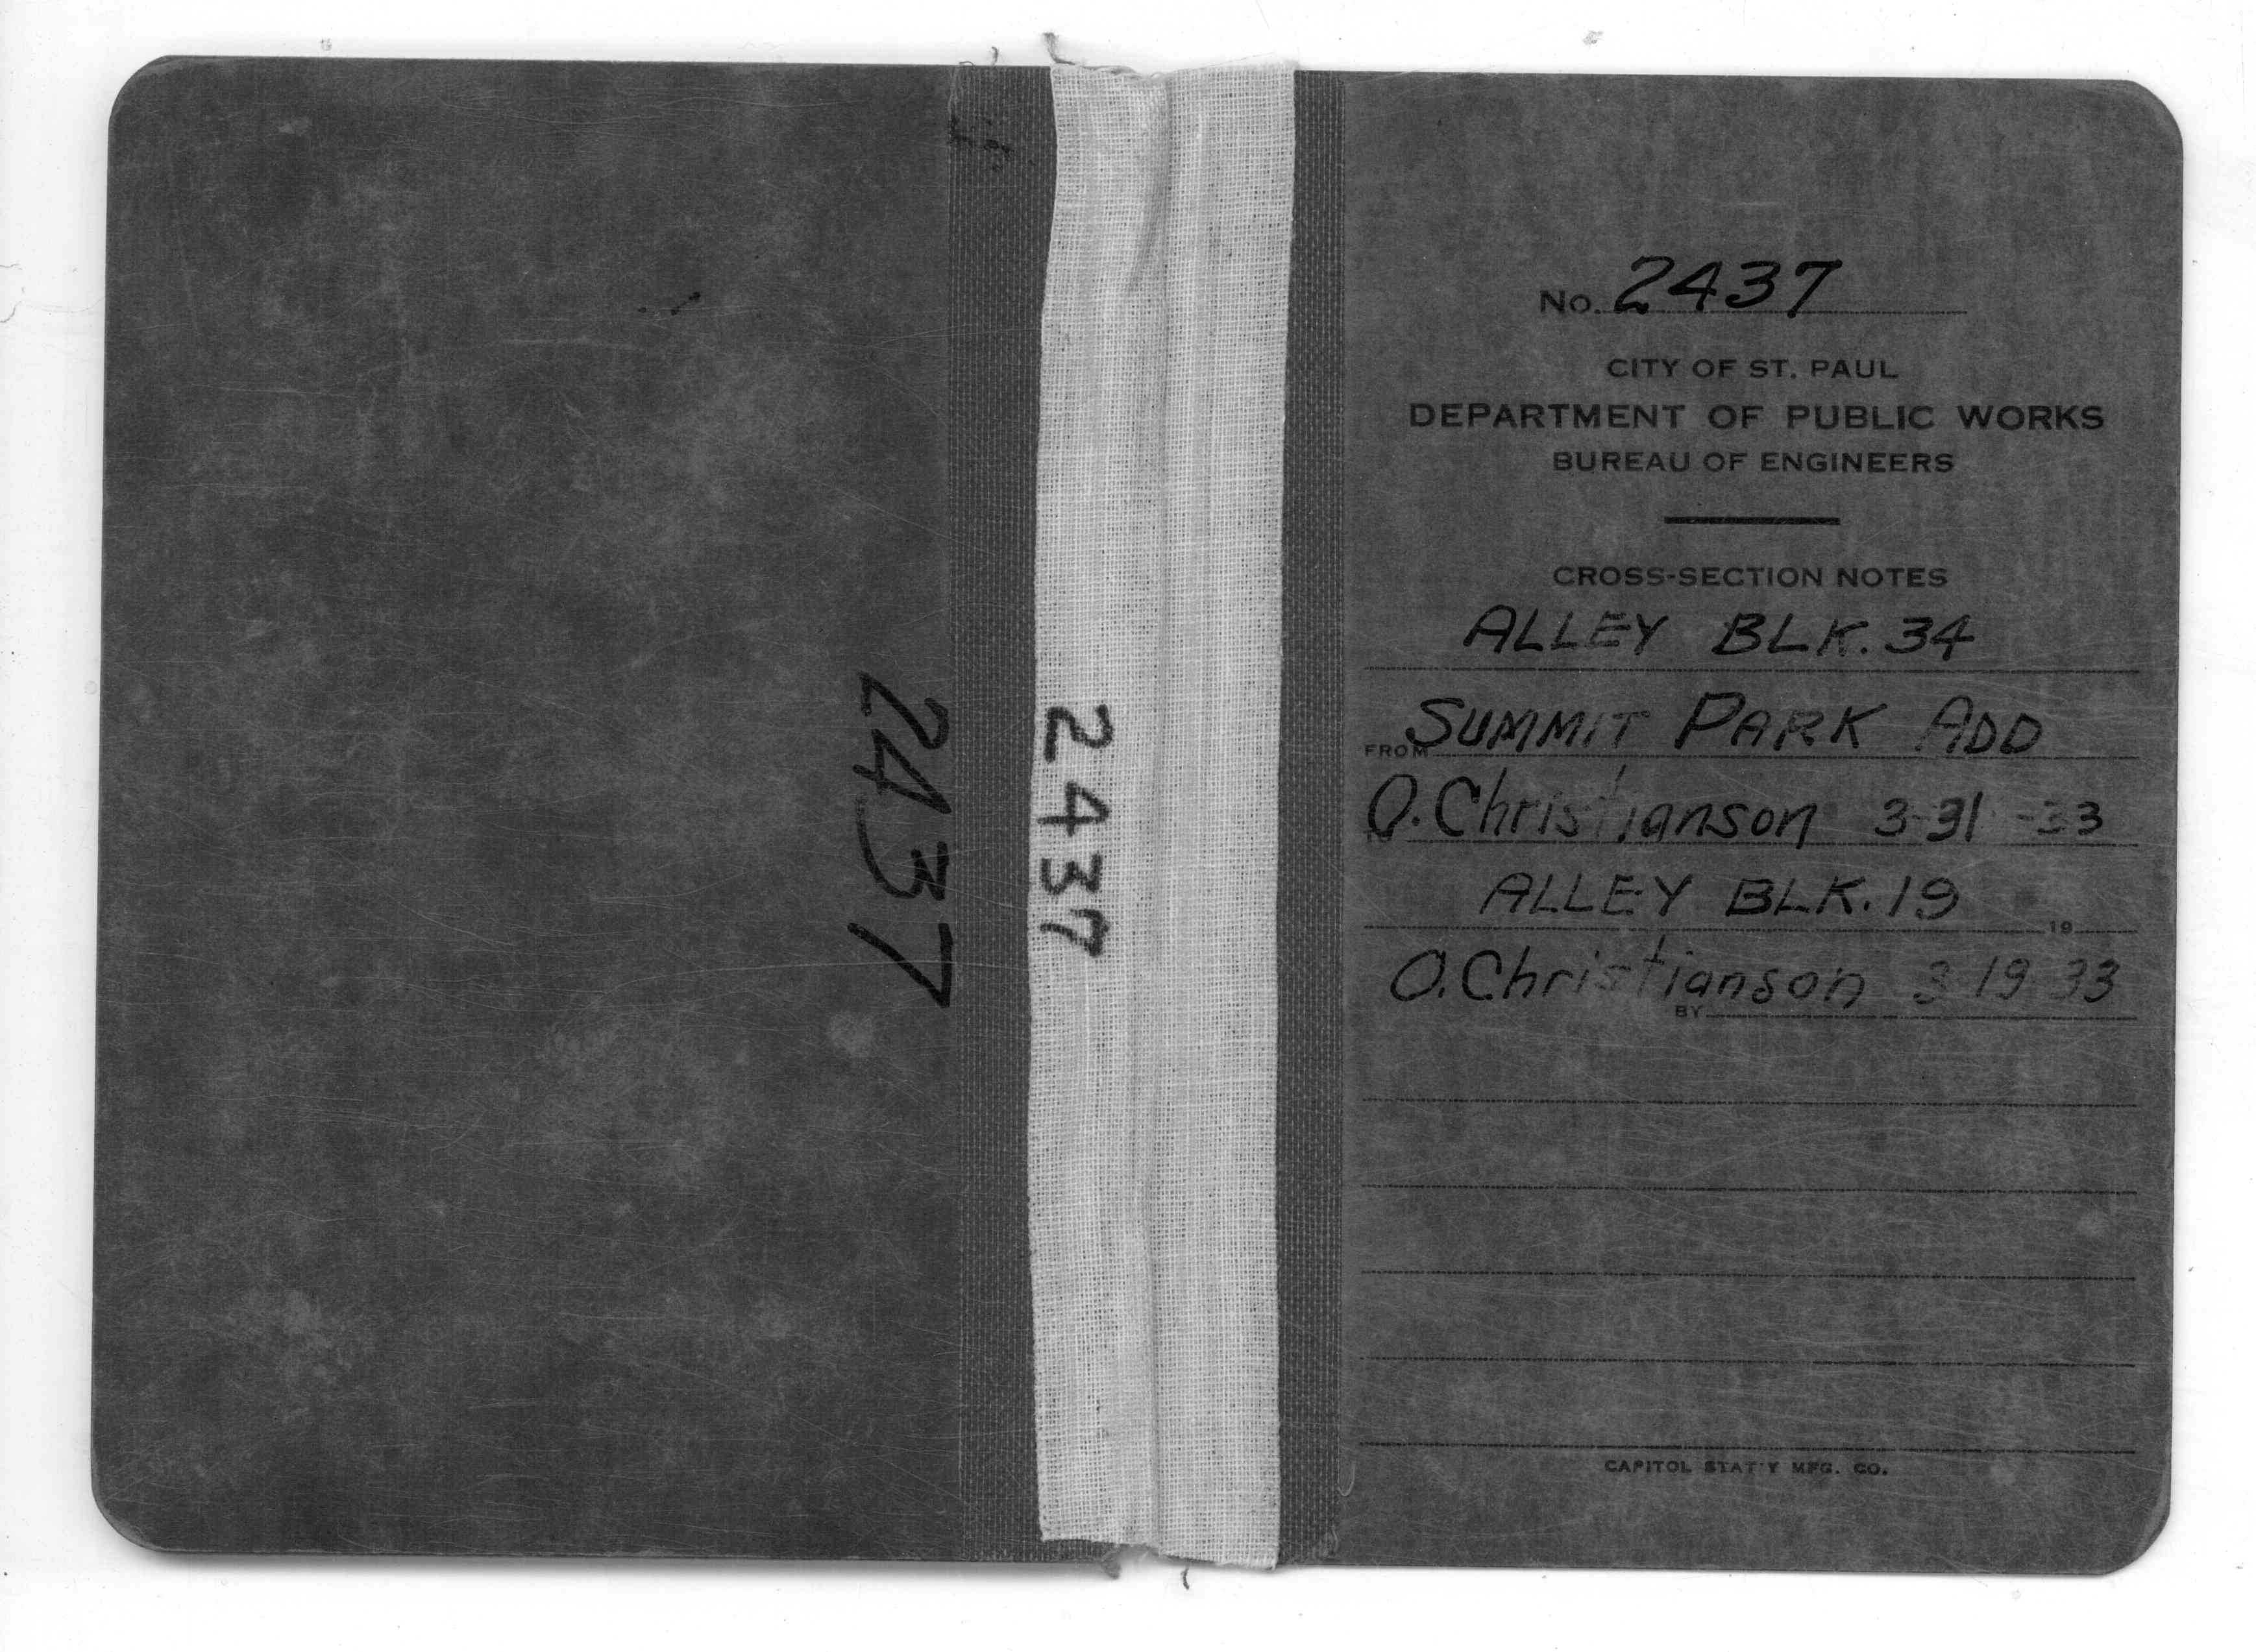 2437
2437
No. 2437
CITY OF ST. PAUL
DEPARTMENT OF PUBLIC WORKS
BUREAU OF ENGINEERS
CROSS-SECTION NOTES
ALLEY BLK. 34
FROM SUMMIT PARK ADD
O. Christianson 3-31-33
ALLEY BLK. 19
19
O. Christianson 3 19 33
BY
CAPITOL STAT'Y MFG. CO.